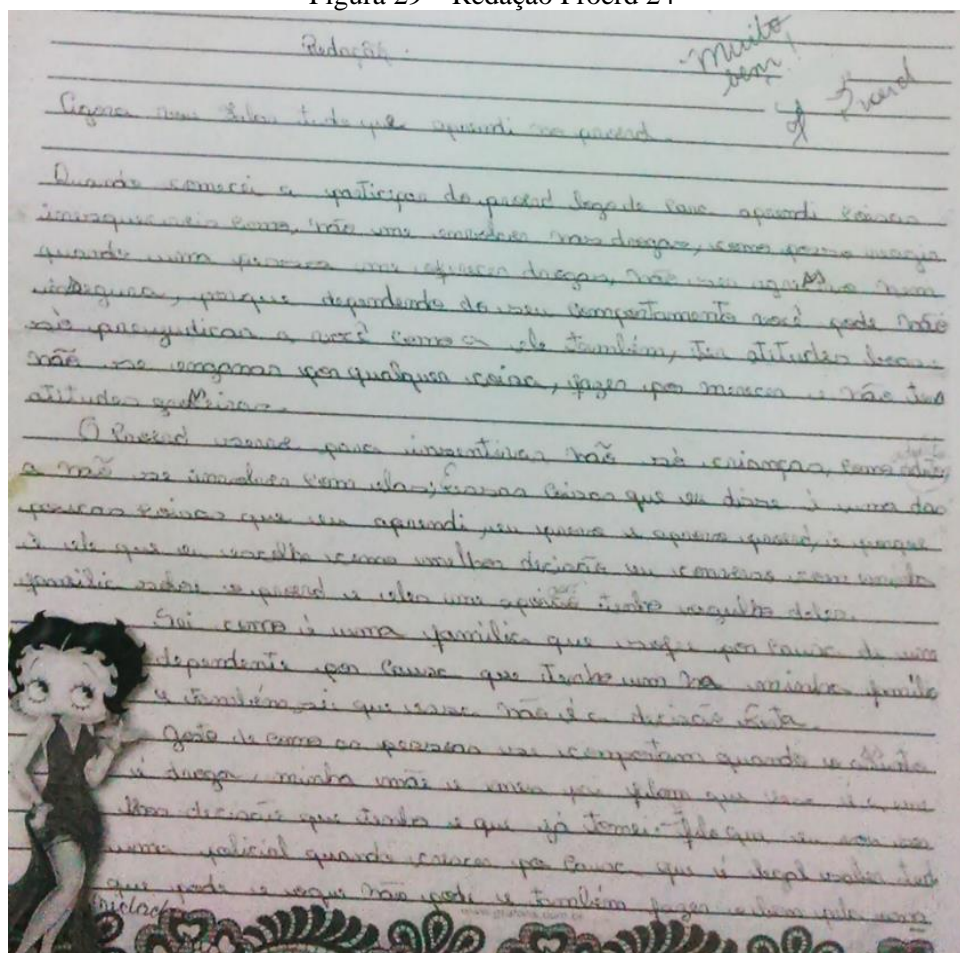 Figura 29 – Redação Proerd 24
Redação.
Muito
bem!
Proerd
Agora vou falar tudo que aprendi no proerd.
Quando comecei a participar do proerd logo de cara aprendi coisas
como, não me envolver nas drogas, como posso reagir
quando uma pessoa me oferecer drogas, não ser agressiva nem
insegura, porque dependendo do seu comportamento você pode não
só prejudicar a você como a ele também, ter atitudes boas,
não se enganar por qualquer coisa, fazer por merecer e não ter
atitudes grosseiras.
O Proerd serve para não só crianças, como adultos
a não se envolver com elas, Essas coisas que eu disse é uma das
poucas coisas que eu aprendi, eu provo e aprovo proerd, é porque
é ele que eu escolho como melhor decisão eu converso com minha
familia sobre o proerd e eles me apoia tenho orgulho deles.
Sei como é uma familia que sofre por causa de um
dependente por causa que tenho um na minha familia
e também sei que essa não é a decisão certa.
Gosto de como as pessoas se comportam quando o assunto
é droga, minha mãe e meu pai falam que essa é a me
lhor decisão que tenho e que já tomei. que eu vou ser
uma policial quando crescer por causa que é legal saber tudo
que pode e o que não pode e também fazer o bem pelo